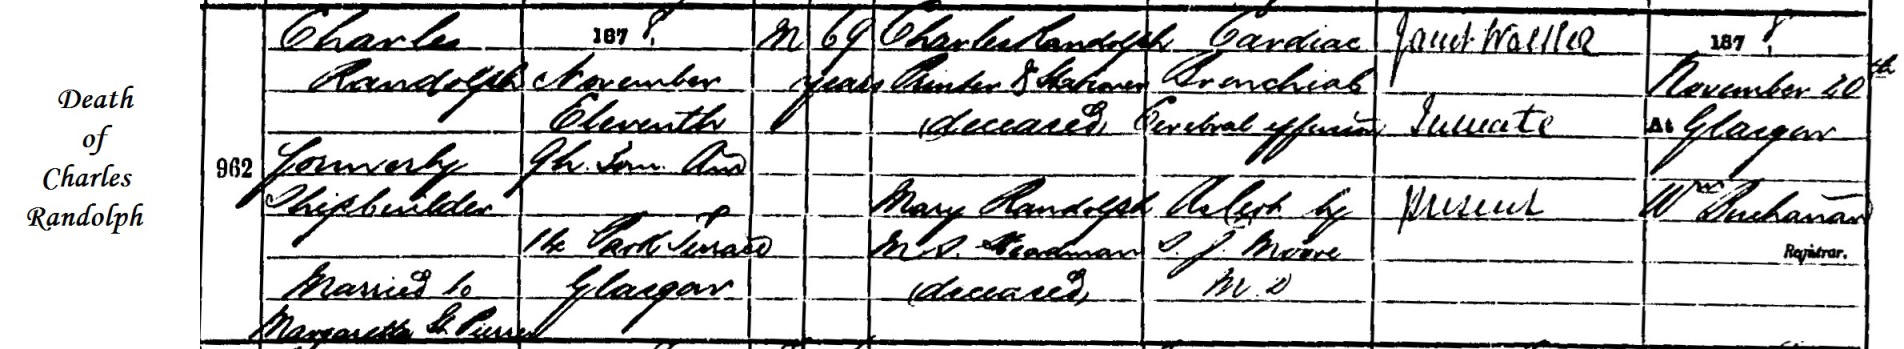 Death
of
Charles
Randolph
962
Charles
Randolph
formerly
Shipbuilder
Married to
Margaretta St. Pierre
1878.
November
Eleventh
9h. 30m. AM
14 Park Terrace
Glasgow
M
69
years
Charles Randolph
Printer & Stationer
(deceased)
Mary Randolph
M.S. Steadman
(deceased)
Cardiac
Bronchial
Cerebral effusion
As Cert. by
J. Moore
M.D
Janet Walker
Inmate
present
1878.
November 20th
At Glasgow
Wm Buchanan
Registrar.